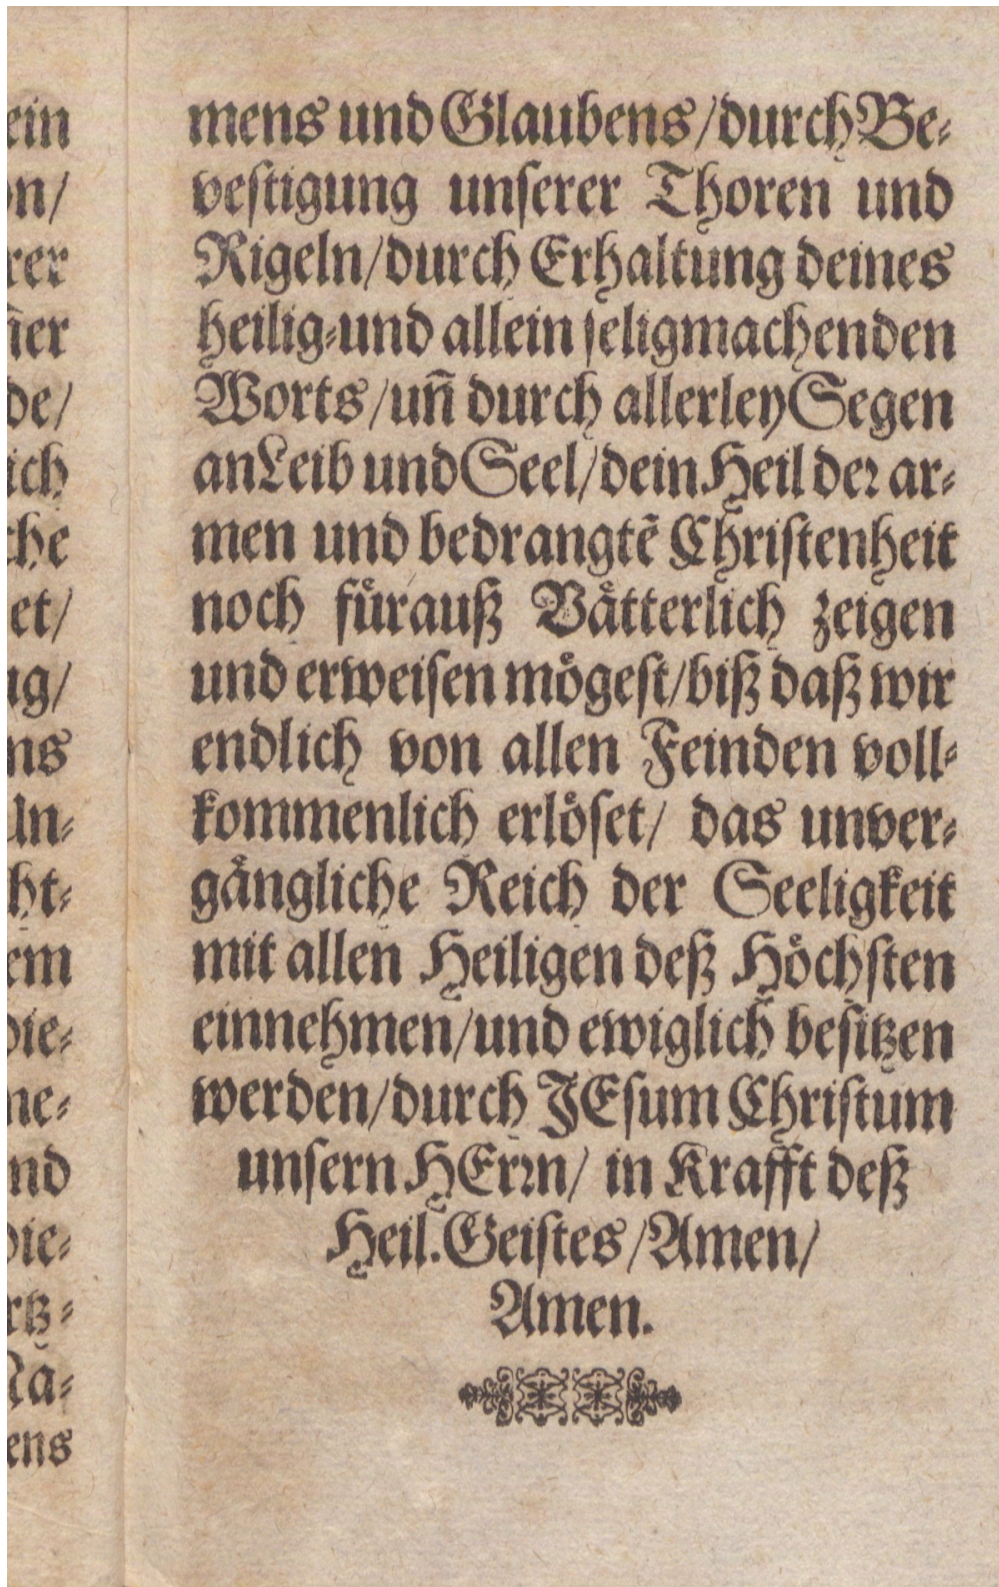 mens und Glaubens/durch Be⸗
vestigung unserer Thoren und
Rigeln/durch Erhaltung deines
heilig⸗und allein seligmachenden
Worts/uñ durch allerley Segen
an Leib und Seel/dein Heil der ar⸗
men und bedrangtẽ Christenheit
noch fuͤrauß Vaͤtterlich zeigen
und erweisen moͤgest/biß daß wir
endlich von allen Feinden voll⸗
kommenlich erloͤset/ das unver⸗
gaͤngliche Reich der Seeligkeit
mit allen Heiligen deß Hoͤchsten
einnehmen/und ewiglich besitzen
werden/durch JEsum Christum
unsern HErrn/ in Krafft deß
Heil. Geistes/Amen/
Amen.